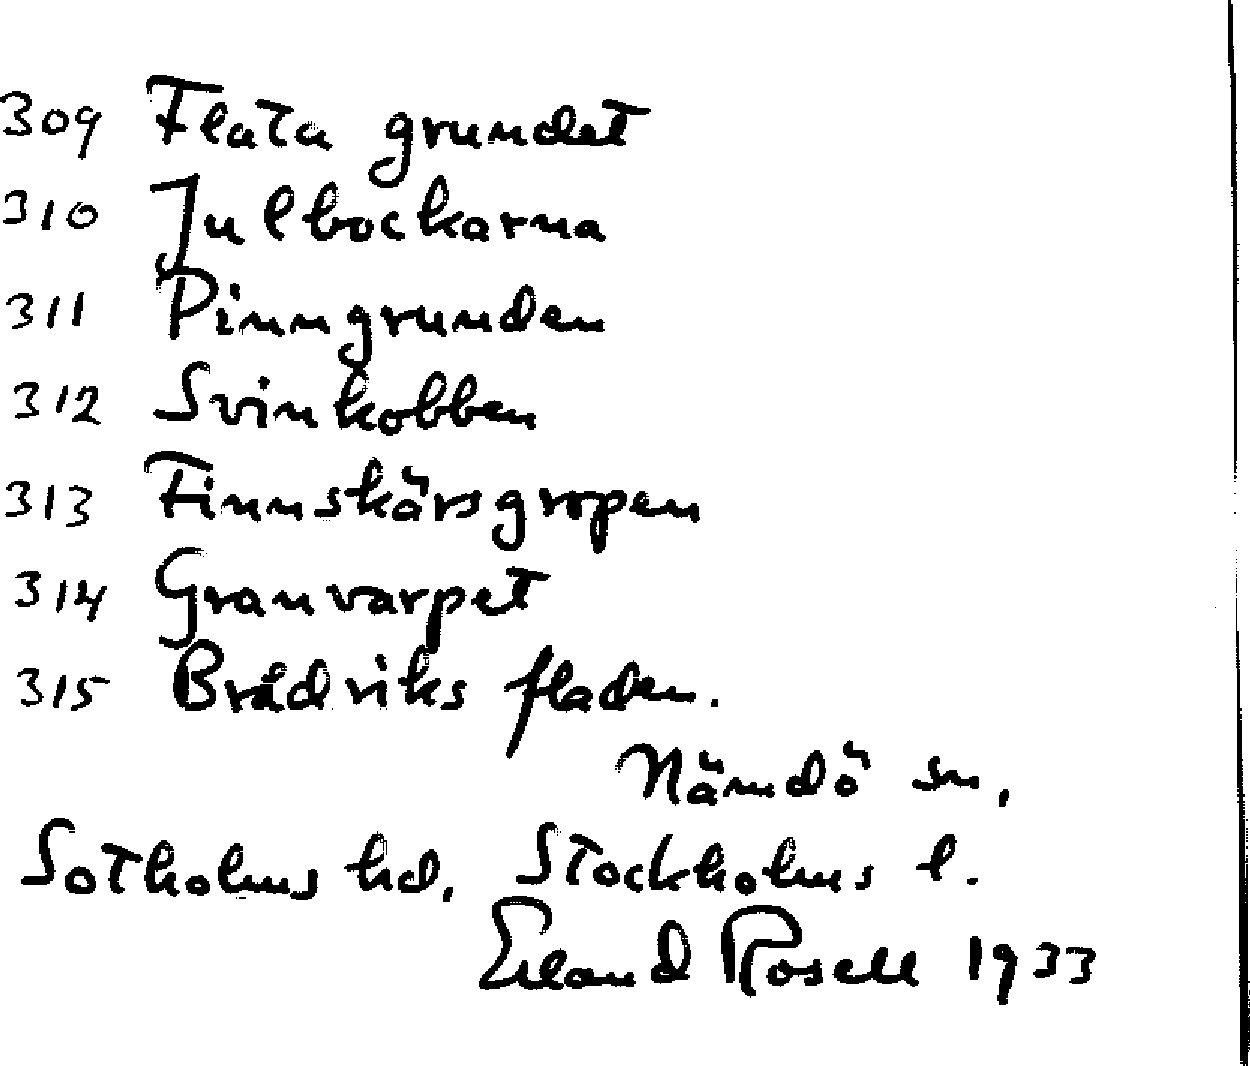 309 Flata grundet
310 Julbockarna
311 Pinngrunden
312 Svinkobben
313 Finnskärsgropen
314 Granvarpet
315 Brådviks fladen.
Nämdö sn,
Sotholms hd, Stockholms l.
Erland Rosell 1933